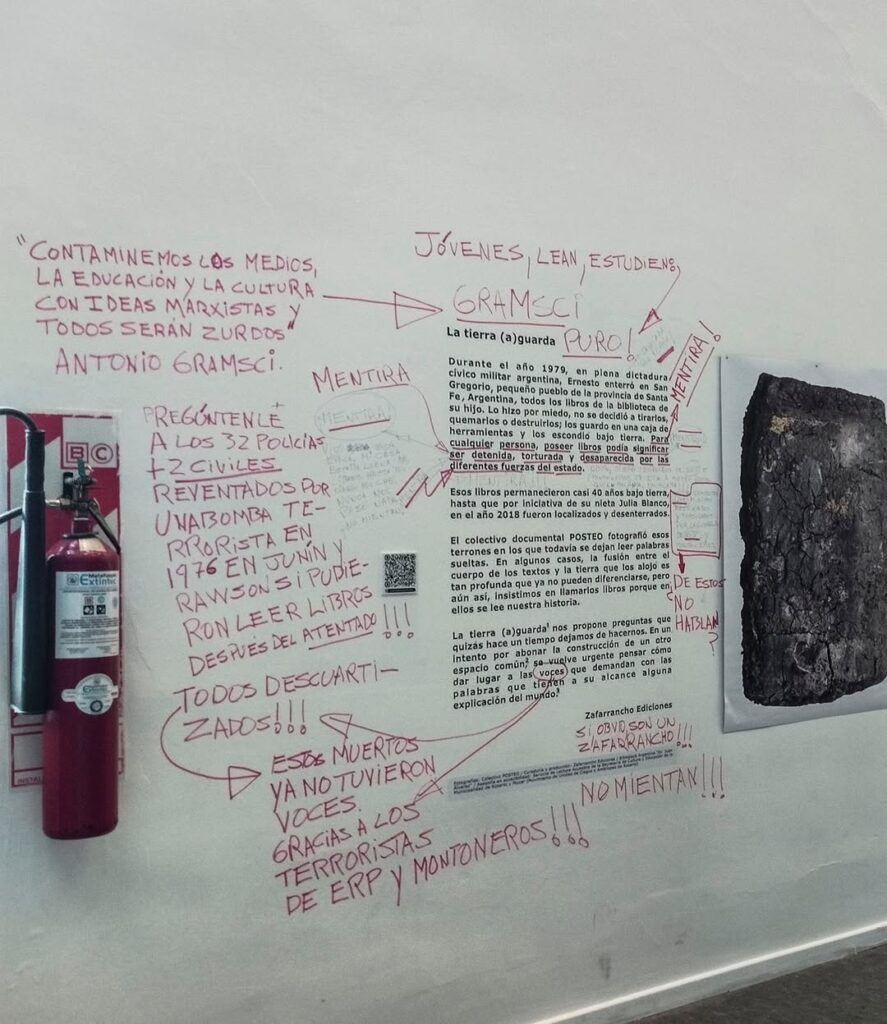 "CONTAMINEMOS LOS MEDIOS,
LA EDUCACIÓN Y LA CULTURA
CON IDEAS MARXISTAS Y
TODOS SERÁN ZURDOS"
ANTONIO GRAMSCI.
JÓVENES, LEAN, ESTUDIEN
GRAMSCI
PURO!
La tierra (a)guarda
MENTIRA!
MENTIRA
MENTIRA
Durante el año 1979, en plena dictadura
cívico militar argentina, Ernesto enterró en San
Gregorio, pequeño pueblo de la provincia de Santa
Fe, Argentina, todos los libros de la biblioteca de
su hijo. Lo hizo por miedo, no se decidió a tirarlos,
quemarlos o destruirlos; los guardo en una caja de
herramientas y los escondió bajo tierra. Para
cualquier persona, poseer libros podía significar
ser detenida, torturada y desaparecida por las
diferentes fuerzas del estado.
Esos libros permanecieron casi 40 años bajo tierra,
hasta que por iniciativa de su nieta Julia Blanco,
en el año 2018 fueron localizados y desenterrados.
El colectivo documental POSTEO fotografió esos
terrones en los que todavía se dejan leer palabras
sueltas. En algunos casos, la fusión entre el
cuerpo de los textos y la tierra que los alojo es
tan profunda que ya no pueden diferenciarse, pero
aún así, insistimos en llamarlos libros porque en
ellos se lee nuestra historia.
La tierra (a)guarda¹ nos propone preguntas que
quizás hace un tiempo dejamos de hacernos. En un
intento por abonar la construcción de un otro
espacio común,² se vuelve urgente pensar cómo
dar lugar a las voces que demandan con las
palabras que tienen a su alcance alguna
explicación del mundo.³
Zafarrancho Ediciones
SI OBVIO, SON UN
ZAFARRANCHO!!!
NO MIENTAN!!!
DE ESTOS
NO
HABLAN
?
PREGÚNTENLE
A LOS 32 POLICIAS
+2 CIVILES
REVENTADOS POR
UNA BOMBA TE-
RRORISTA EN
1976 EN JUNÍN Y
RAWSON SI PUDIE-
RON LEER LIBROS
DESPUÉS DEL ATENTADO!!!
TODOS DESCUARTI-
ZADOS!!!
ESTOS MUERTOS
YA NO TUVIERON
VOCES.
GRACIAS A LOS
TERRORISTAS
DE ERP Y MONTONEROS!!!
BC
Extintec